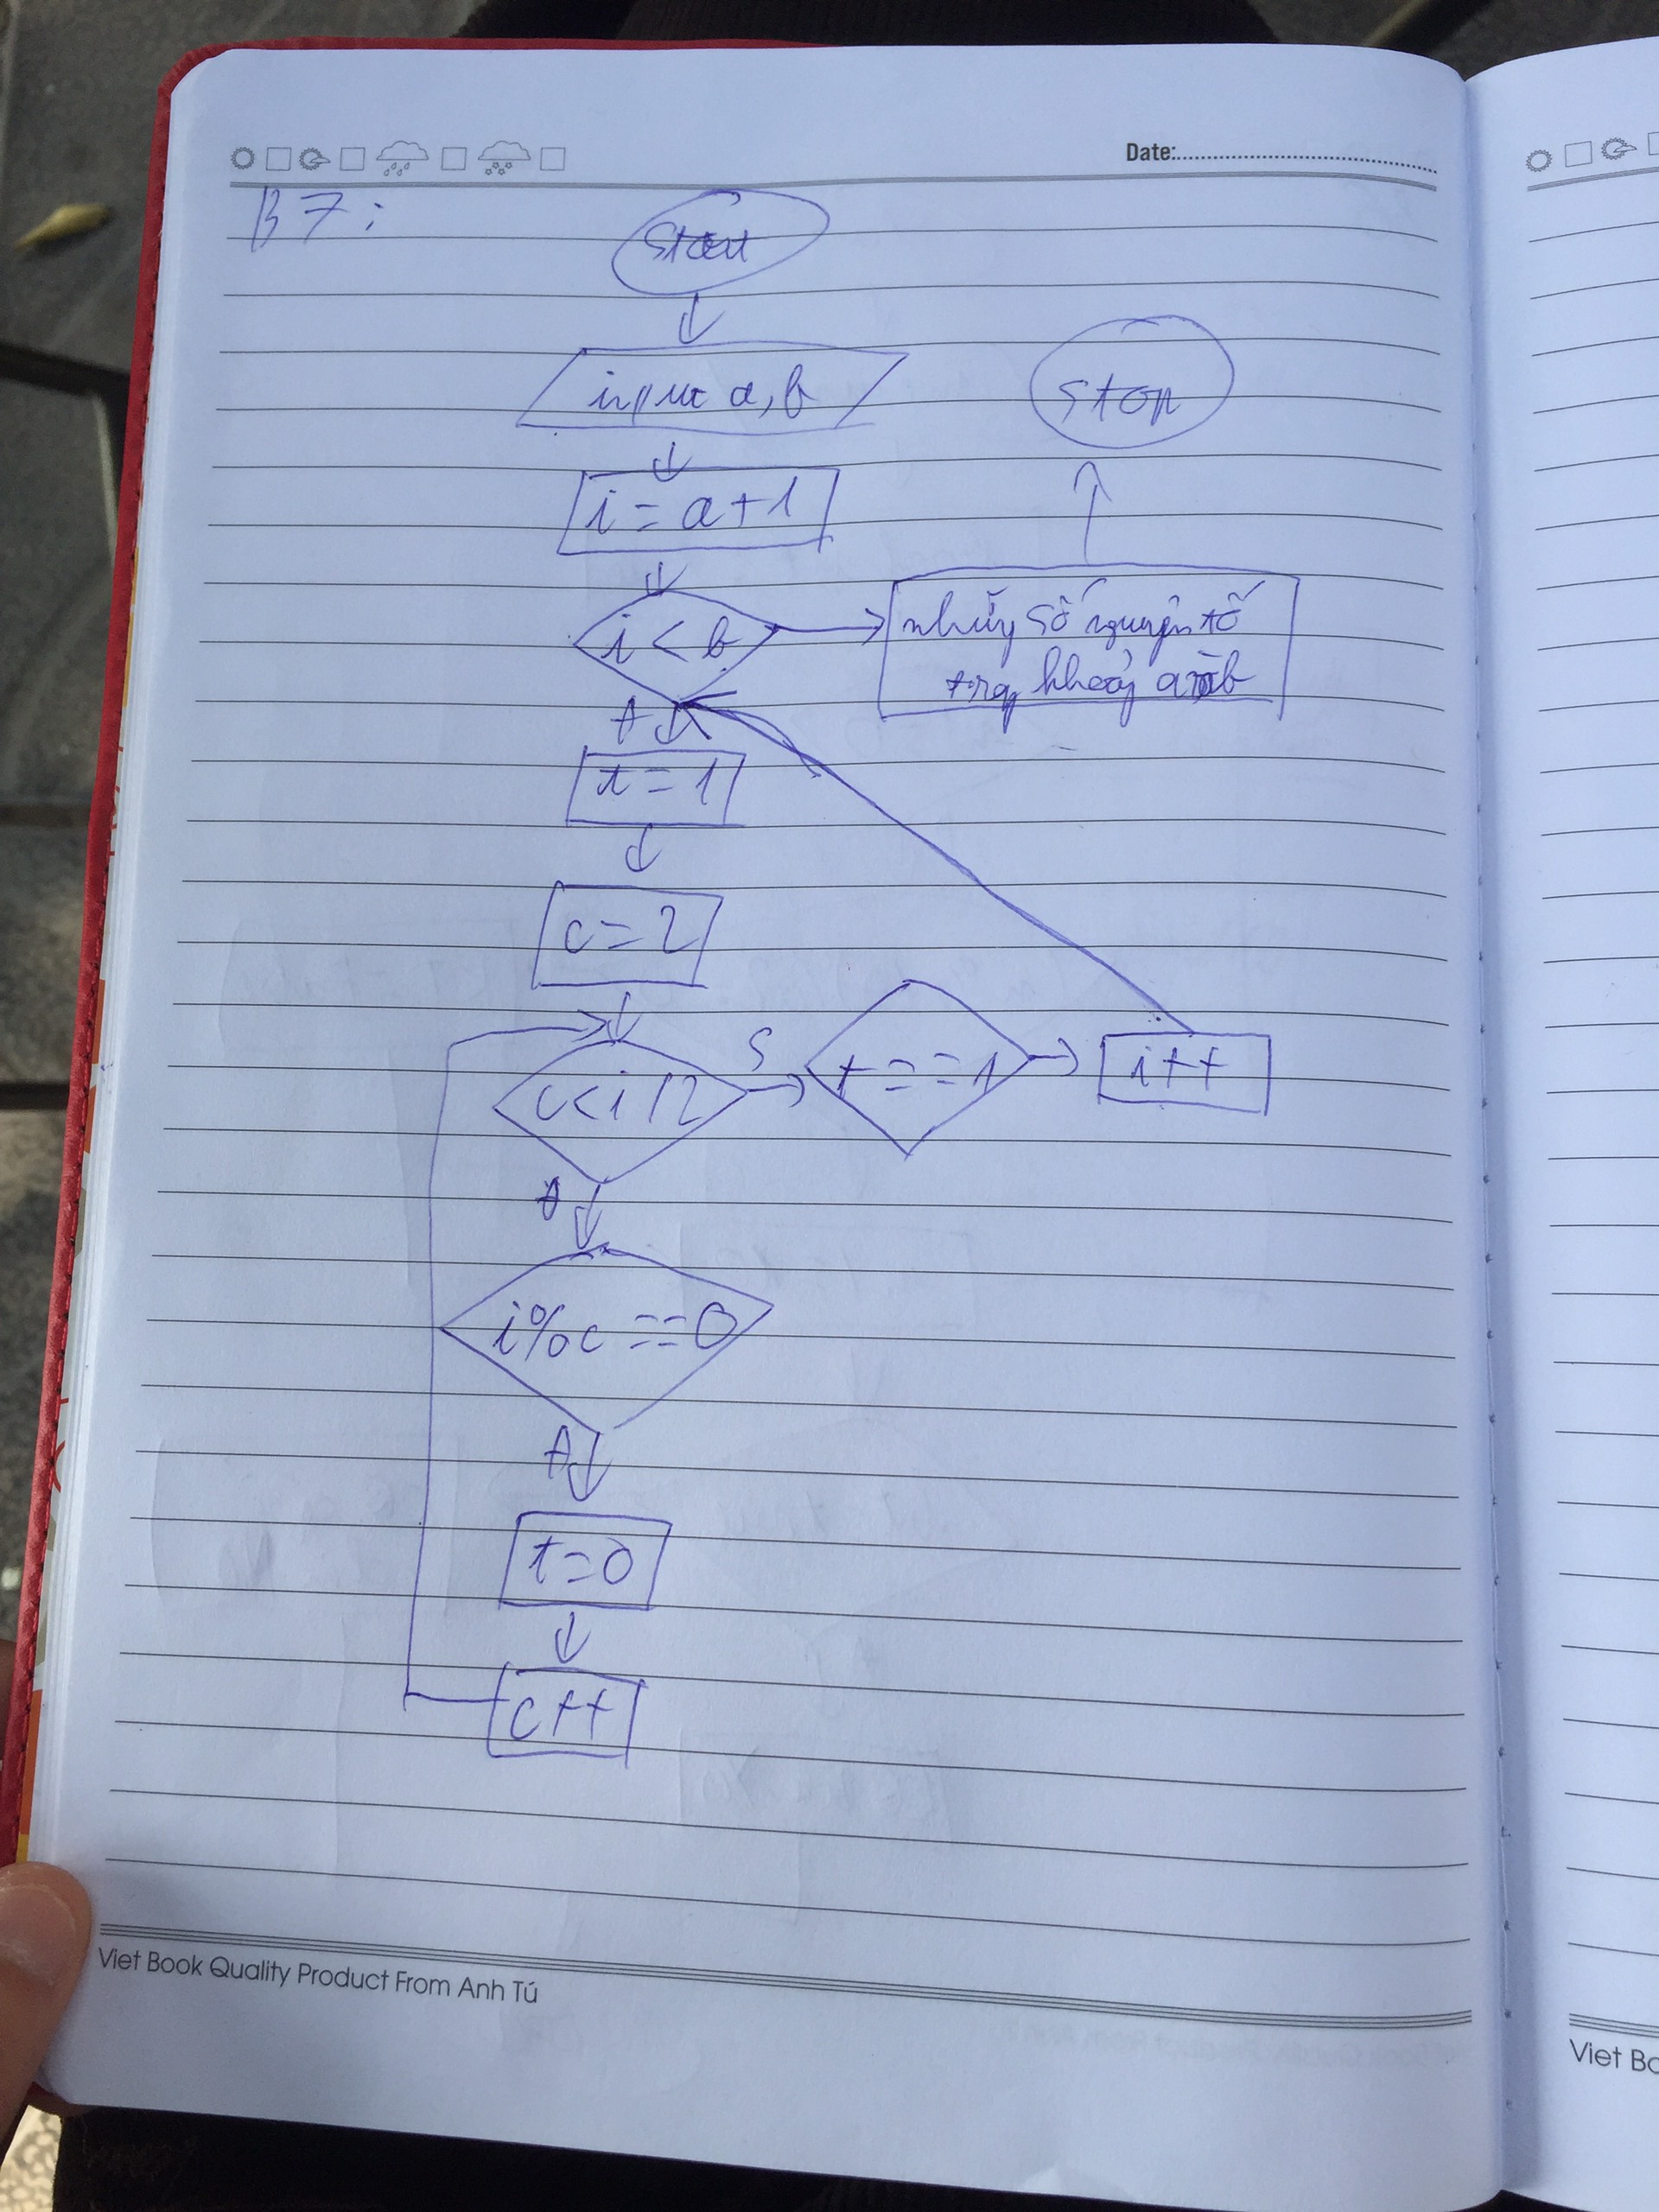 Date:
B7:
Start
input a, b
stop
i = a + 1
i < b
những số nguyên tố
trong khoảng a b
Đ
t = 1
c = 2
S
c < i / 2
t = = 1
i++
Đ
i % c == 0
Đ
t = 0
c++
Viet Book Quality Product From Anh Tú
Viet Bo